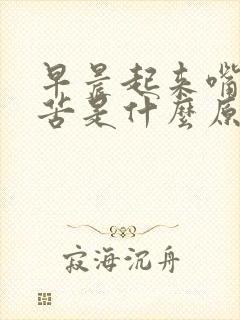 早晨起来嘴
苦是什麼原
寂海沉舟